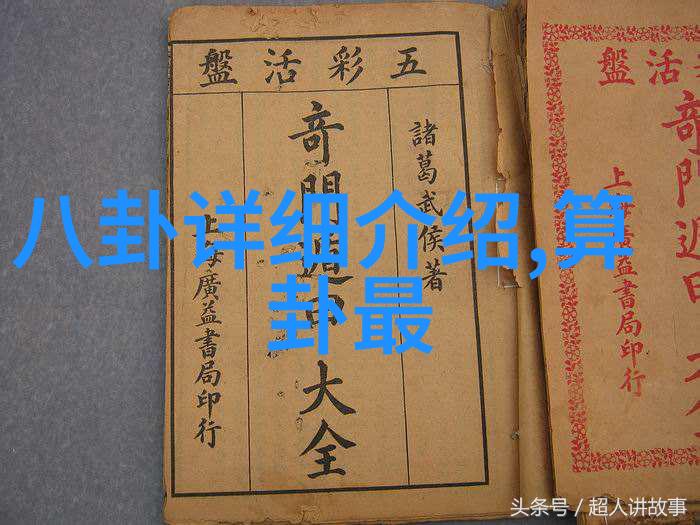 五彩活盤
諸葛武侯著
奇門遁甲大全
上海廣益書局印行
活盤
奇門遁甲
上海廣益書局印行
八卦详细介绍,算
卦最
头条号 / 超人讲故事